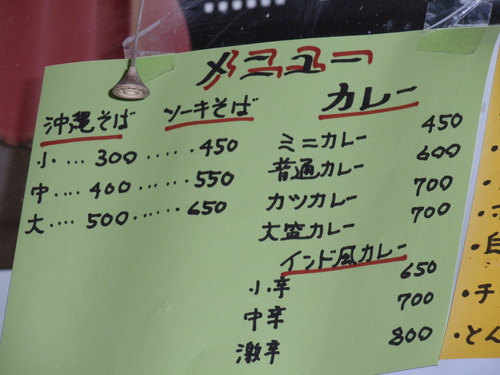 メニュー
沖縄そば ソーキそば
小 … 300 ….. 450
中 … 400 …… 550
大 …. 500 …… 650
カレー
ミニカレー 450
普通カレー 600
カツカレー 700
大盛カレー 700
インド風カレー
小辛 650
中辛 700
激辛 800
・白
・チ
・とん